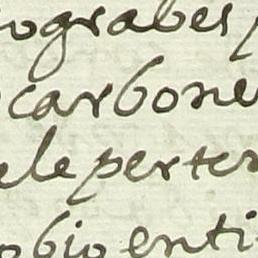 ograbes
carbone
ele perten
obio enti